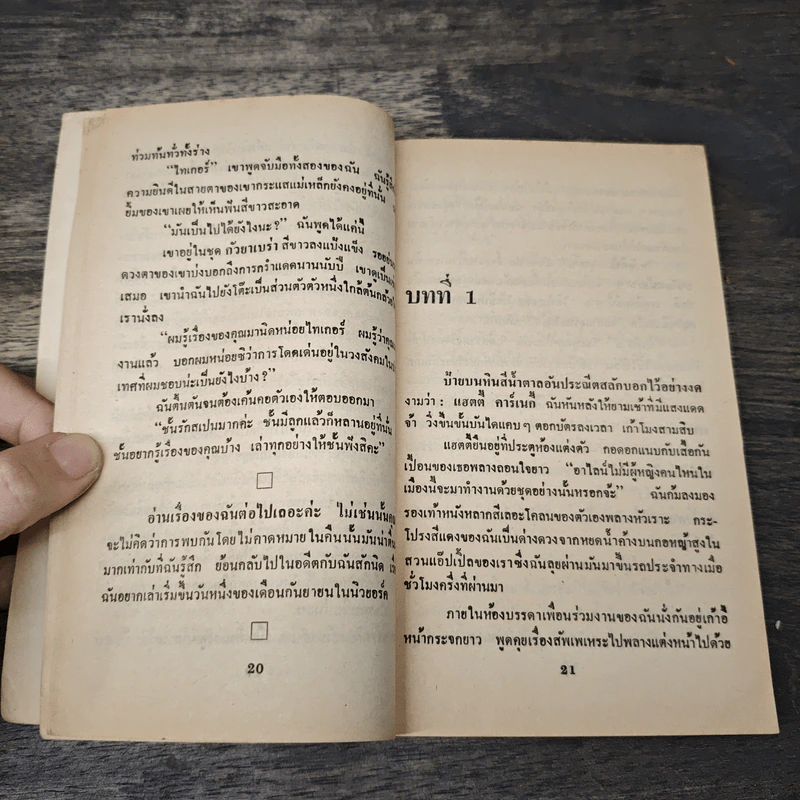 ท่วมท้นทั่วทั้งร่าง
“ไทเกอร์” เขาพูดจับมือทั้งสองของฉัน ฉันรู้สึก
ความยินดีในสายตาของเขากระแสแม่เหล็กยังคงอยู่ที่นั่น
ยิ้มของเขาเผยให้เห็นฟันสีขาวสะอาด
“มันเป็นไปได้ยังไงนะ?” ฉันพูดได้แค่นี้
เขาอยู่ในชุด กัวยาเบร่า สีขาวลงแป้งแข็ง รอยย่น
ดวงตาของเขาบ่งบอกถึงการกรำแดดนานนับปี เขาดูเป็น
เสมอ เขานำฉันไปยังโต๊ะเป็นส่วนตัวตัวหนึ่งใกล้ต้นกล้วย
เรานั่งลง
“ผมรู้เรื่องของคุณมานิดหน่อยไทเกอร์ ผมรู้ว่าคุณ
งานแล้ว บอกผมหน่อยซิว่าการโดดเด่นอยู่ในวงสังคมใน
เทศที่ผมชอบน่ะเป็นยังไงบ้าง?”
ฉันตื้นตันจนต้องเค้นคอตัวเองให้ตอบออกมา
“ชั้นรักสเปนมากค่ะ ชั้นมีลูกแล้วก็หลานอยู่ที่นั่น
ชั้นอยากรู้เรื่องของคุณบ้าง เล่าทุกอย่างให้ชั้นฟังสิคะ”
อ่านเรื่องของฉันต่อไปเลอะค่ะ ไม่เช่นนั้นคุณ
จะไม่คิดว่าการพบกันโดยไม่คาดหมายในคืนนั้นมันน่าตื่น
มากเท่ากับที่ฉันรู้สึก ย้อนกลับไปในอดีตกับฉันสักนิด
ฉันอยากเล่าเริ่มขึ้นวันหนึ่งของเดือนกันยายนในนิวยอร์ค
20
บทที่ 1
ป้ายบนหินสีน้ำตาลอันประณีตสลักบอกไว้อย่างงด
งามว่า : แฮตตี้ คาร์เนกี้ ฉันหันหลังให้ยามเช้าที่มีแสงแดด
จ้า วิ่งขึ้นขั้นบันไดแคบๆ ตอกบัตรลงเวลา เก้าโมงสามสิบ
แฮตตี้ยืนอยู่ที่ประตูห้องแต่งตัว กอดอกแนบกับเสื้อกัน
เปื้อนของเธอพลางถอนใจยาว “อาไลน์ไม่มีผู้หญิงคนไหนใน
เมืองนี้จะมาทำงานด้วยชุดอย่างนั้นหรอกจ้ะ” ฉันก้มลงมอง
รองเท้าหนังหลากสีเลอะโคลนของตัวเองพลางหัวเราะ กระ-
โปรงสีแดงของฉันเป็นด่างดวงจากหยดน้ำค้างบนกอหญ้าสูงใน
สวนแอ๊ปเปิ้ลของเราซึ่งฉันลุยผ่านมันมาขึ้นรถประจำทางเมื่อ
ชั่วโมงครึ่งที่ผ่านมา
ภายในห้องบรรดาเพื่อนร่วมงานของฉันนั่งกันอยู่เก้าอี้
หน้ากระจกยาว พูดคุยเรื่องสัพเพเหระไปพลางแต่งหน้าไปด้วย
21